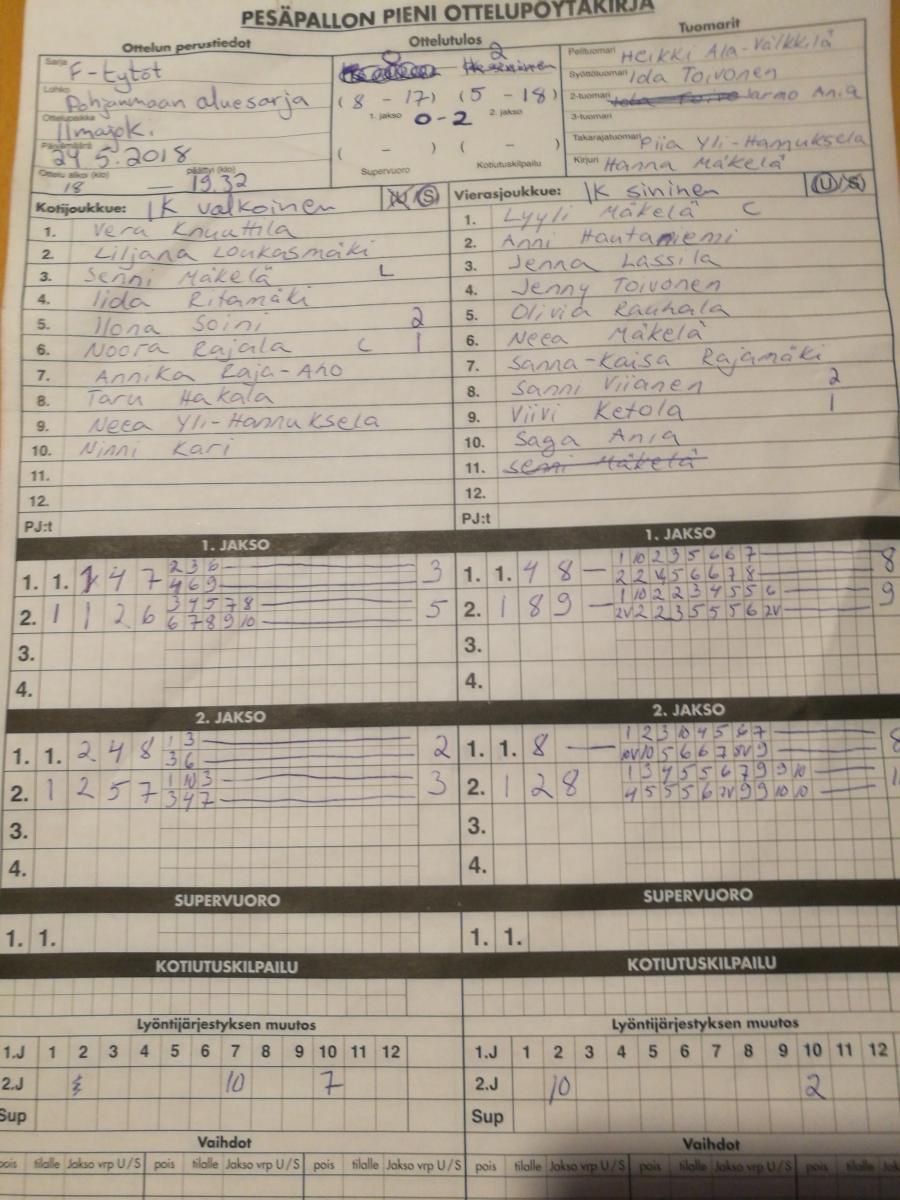 PESÄPALLON PIENI OTTELUPÖYTÄKIRJA
Ottelun perustiedot
Sarja F-tytöt
Lohko Pohjanmaan aluesarja
Ottelupaikka Ilmajoki.
Päivämäärä 24.5.2018
Ottelu alkoi (klo) 18 — päättyi (klo) 19.32
Ottelutulos
0 2
(8 - 17) (5 - 18)
1. jakso 0-2 2. jakso
( - ) ( - )
Supervuoro Kotiutuskilpailu
Tuomarit
Pelituomari Heikki Ala-Välkkilä
Syöttötuomari Ida Toivonen
2-tuomari Jarmo Ania
3-tuomari
Takarajatuomari Piia Yli-Hannuksela
Kirjuri Hanna Mäkelä
Kotijoukkue: IK valkoinen U/S
1. Vera Knuuttila
2. Liljana Loukasmäki
3. Senni Mäkelä L
4. Iida Ritamäki
5. Ilona Soini 2
6. Noora Rajala C 1
7. Annika Raja-Aho
8. Taru Hakala
9. Neea Yli-Hannuksela
10. Ninni Kari
11.
12.
PJ:t
Vierasjoukkue: IK sininen U/S
1. Lyyli Mäkelä C
2. Anni Hautaniemi
3. Jenna Lassila
4. Jenny Toivonen
5. Olivia Rauhala
6. Neea Mäkelä
7. Sanna-Kaisa Rajamäki
8. Sanni Viianen 2
9. Viivi Ketola 1
10. Saga Ania
11. Senni Mäkelä
12.
PJ:t
1. JAKSO
1. 1. 1 4 7 2 3 6 3
4 6 9
2. 1 1 2 6 3 4 5 7 8 5
6 7 8 9 10
3.
4.
1. JAKSO
1. 1. 4 8 — 1 10 2 3 5 6 6 7 8
2 2 4 5 6 6 7 8
2. 1 8 9 — 1 10 2 2 3 4 5 5 6 9
2V 2 2 3 5 5 5 6 2V
3.
4.
2. JAKSO
1. 1. 2 4 8 1 3 2
3 6
2. 1 2 5 7 1 10 3 3
3 4 7
3.
4.
2. JAKSO
1. 1. 8 — 1 2 3 10 4 5 6 7 8
10V 10 5 6 6 7 8V 9
2. 1 2 8 1 3 4 5 5 6 7 9 9 10
4 5 5 5 6 2V 9 9 10 10
3.
4.
SUPERVUORO
1. 1.
SUPERVUORO
1. 1.
KOTIUTUSKILPAILU
KOTIUTUSKILPAILU
Lyöntijärjestyksen muutos
1.J 1 2 3 4 5 6 7 8 9 10 11 12
2.J 10 7
Sup
Lyöntijärjestyksen muutos
1.J 1 2 3 4 5 6 7 8 9 10 11 12
2.J 10 2
Sup
Vaihdot
pois tilalle Jakso vrp U/S pois tilalle Jakso vrp U/S pois tilalle Jakso vrp U/S
Vaihdot
pois tilalle Jakso vrp U/S pois tilalle Jakso vrp U/S pois tilalle